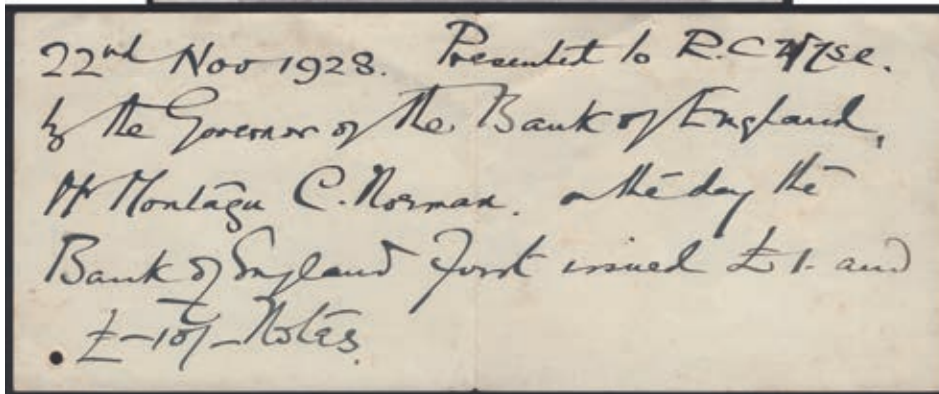 22nd Nov 1928. Presented to R.C. Wyse.
by the Governor of the Bank of England,
Mr Montagu C. Norman. on the day the
Bank of England first issued £1. and
£-10/- Notes.